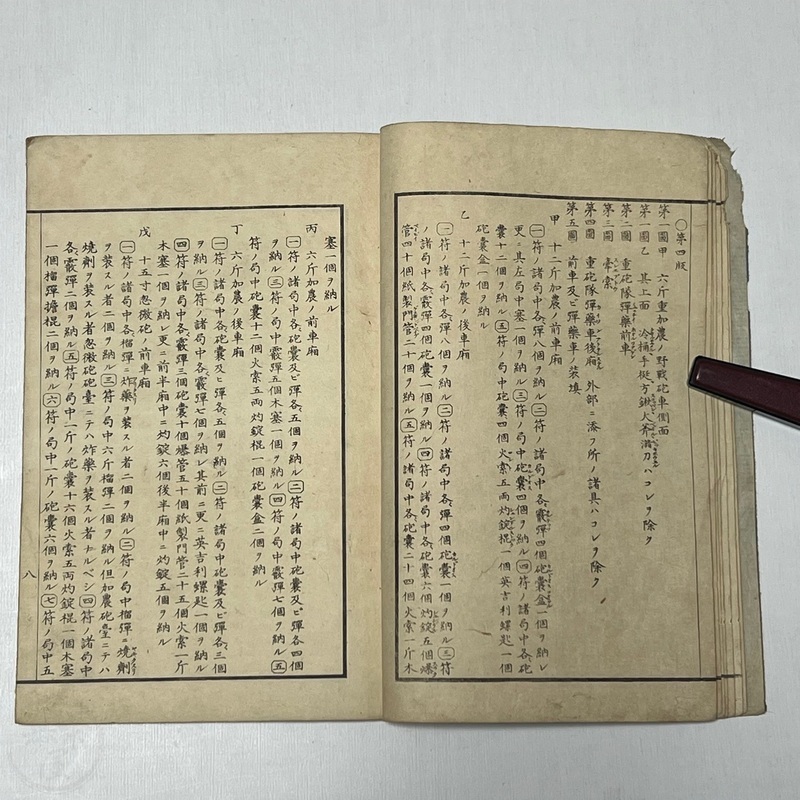 〇第四版
第一圖甲 六斤重加農ノ野戰砲車側面
第一圖乙 其上面 冷桶手梃方鍬大斧滿刀ハコレヲ除ク
第二圖 重砲隊彈藥前車
第三圖 牽索
第四圖 重砲隊彈藥車後廂 外部ニ添フ所ノ諸具ハコレヲ除ク
第五圖 前車及ビ彈藥車ノ裝填
甲 十二斤加農ノ前車廂
一符ノ諸局中各彈八個ヲ納ル二符ノ諸局中各霰彈四個砲囊盒一個ヲ納レ
更ニ其左局中塞一個ヲ納ル三符ノ局中砲囊四個ヲ納ル四符ノ諸局中各砲
囊十二個ヲ納ル五符ノ局中砲囊四個火索五兩灼錠棍一個英吉利螺匙一個
砲囊盒一個ヲ納ル
乙 十二斤加農ノ後車廂
一符ノ諸局中各彈八個ヲ納ル二符ノ諸局中各彈四個砲囊一個ヲ納ル三符
ノ諸局中各霰彈四個砲囊一個ヲ納ル四符ノ諸局中各砲囊六個灼錠五個爆
管四十個紙製門管二十個ヲ納ル五符ノ諸局中各砲囊二十四個火索一斤木
塞一個ヲ納ル
丙 六斤加農ノ前車廂
一符ノ諸局中各砲囊及ビ彈各五個ヲ納ル二符ノ諸局中砲囊及ビ彈各四個
ヲ納ル三符ノ局中霰彈五個木塞一個ヲ納ル四符ノ局中霰彈七個ヲ納ル五
符ノ局中砲囊十二個火索五兩灼錠棍一個砲囊盒二個ヲ納ル
丁 六斤加農ノ後車廂
一符ノ諸局中各砲囊及ビ彈各五個ヲ納ル二符ノ諸局中砲囊及ビ彈各三個
ヲ納ル三符ノ諸局中各彈七個ヲ納レ其前ニ更ニ英吉利螺匙一個ヲ納ル
四符ノ諸局中各霰彈三個砲囊十個爆管五十個紙製門管二十五個火索一斤
木塞一個ヲ納レ更ニ前半廂中ニ灼錠六個後半廂中ニ灼錠五個ヲ納ル
戊 十五寸忽微砲ノ前車廂
一符ノ諸局中各榴彈ニ炸藥ヲ裝スル者二個ヲ納ル二符ノ局中榴彈ニ燒劑
ヲ裝スル者二個ヲ納ル三符ノ局中六斤榴彈二個ヲ納ル但加農砲臺ニテハ
燒劑ヲ裝スル者忽微砲砲臺ニテハ炸藥ヲ裝スル者ナルベシ四符ノ諸局中
各霰彈二個ヲ納ル五符ノ局中一斤ノ砲囊十六個火索五兩灼錠棍一個木塞
一個榴彈擔棍二個ヲ納ル六符ノ局中一斤ノ砲囊六個ヲ納ル七符ノ局中五
八